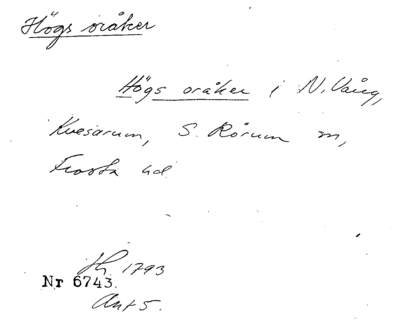 Högs oråker
Högs oråker i N. Vång,
Kvesarum, S. Rörum sn,
Frosta hd
Jh. 1793
Nr 6743.
Akt 5.